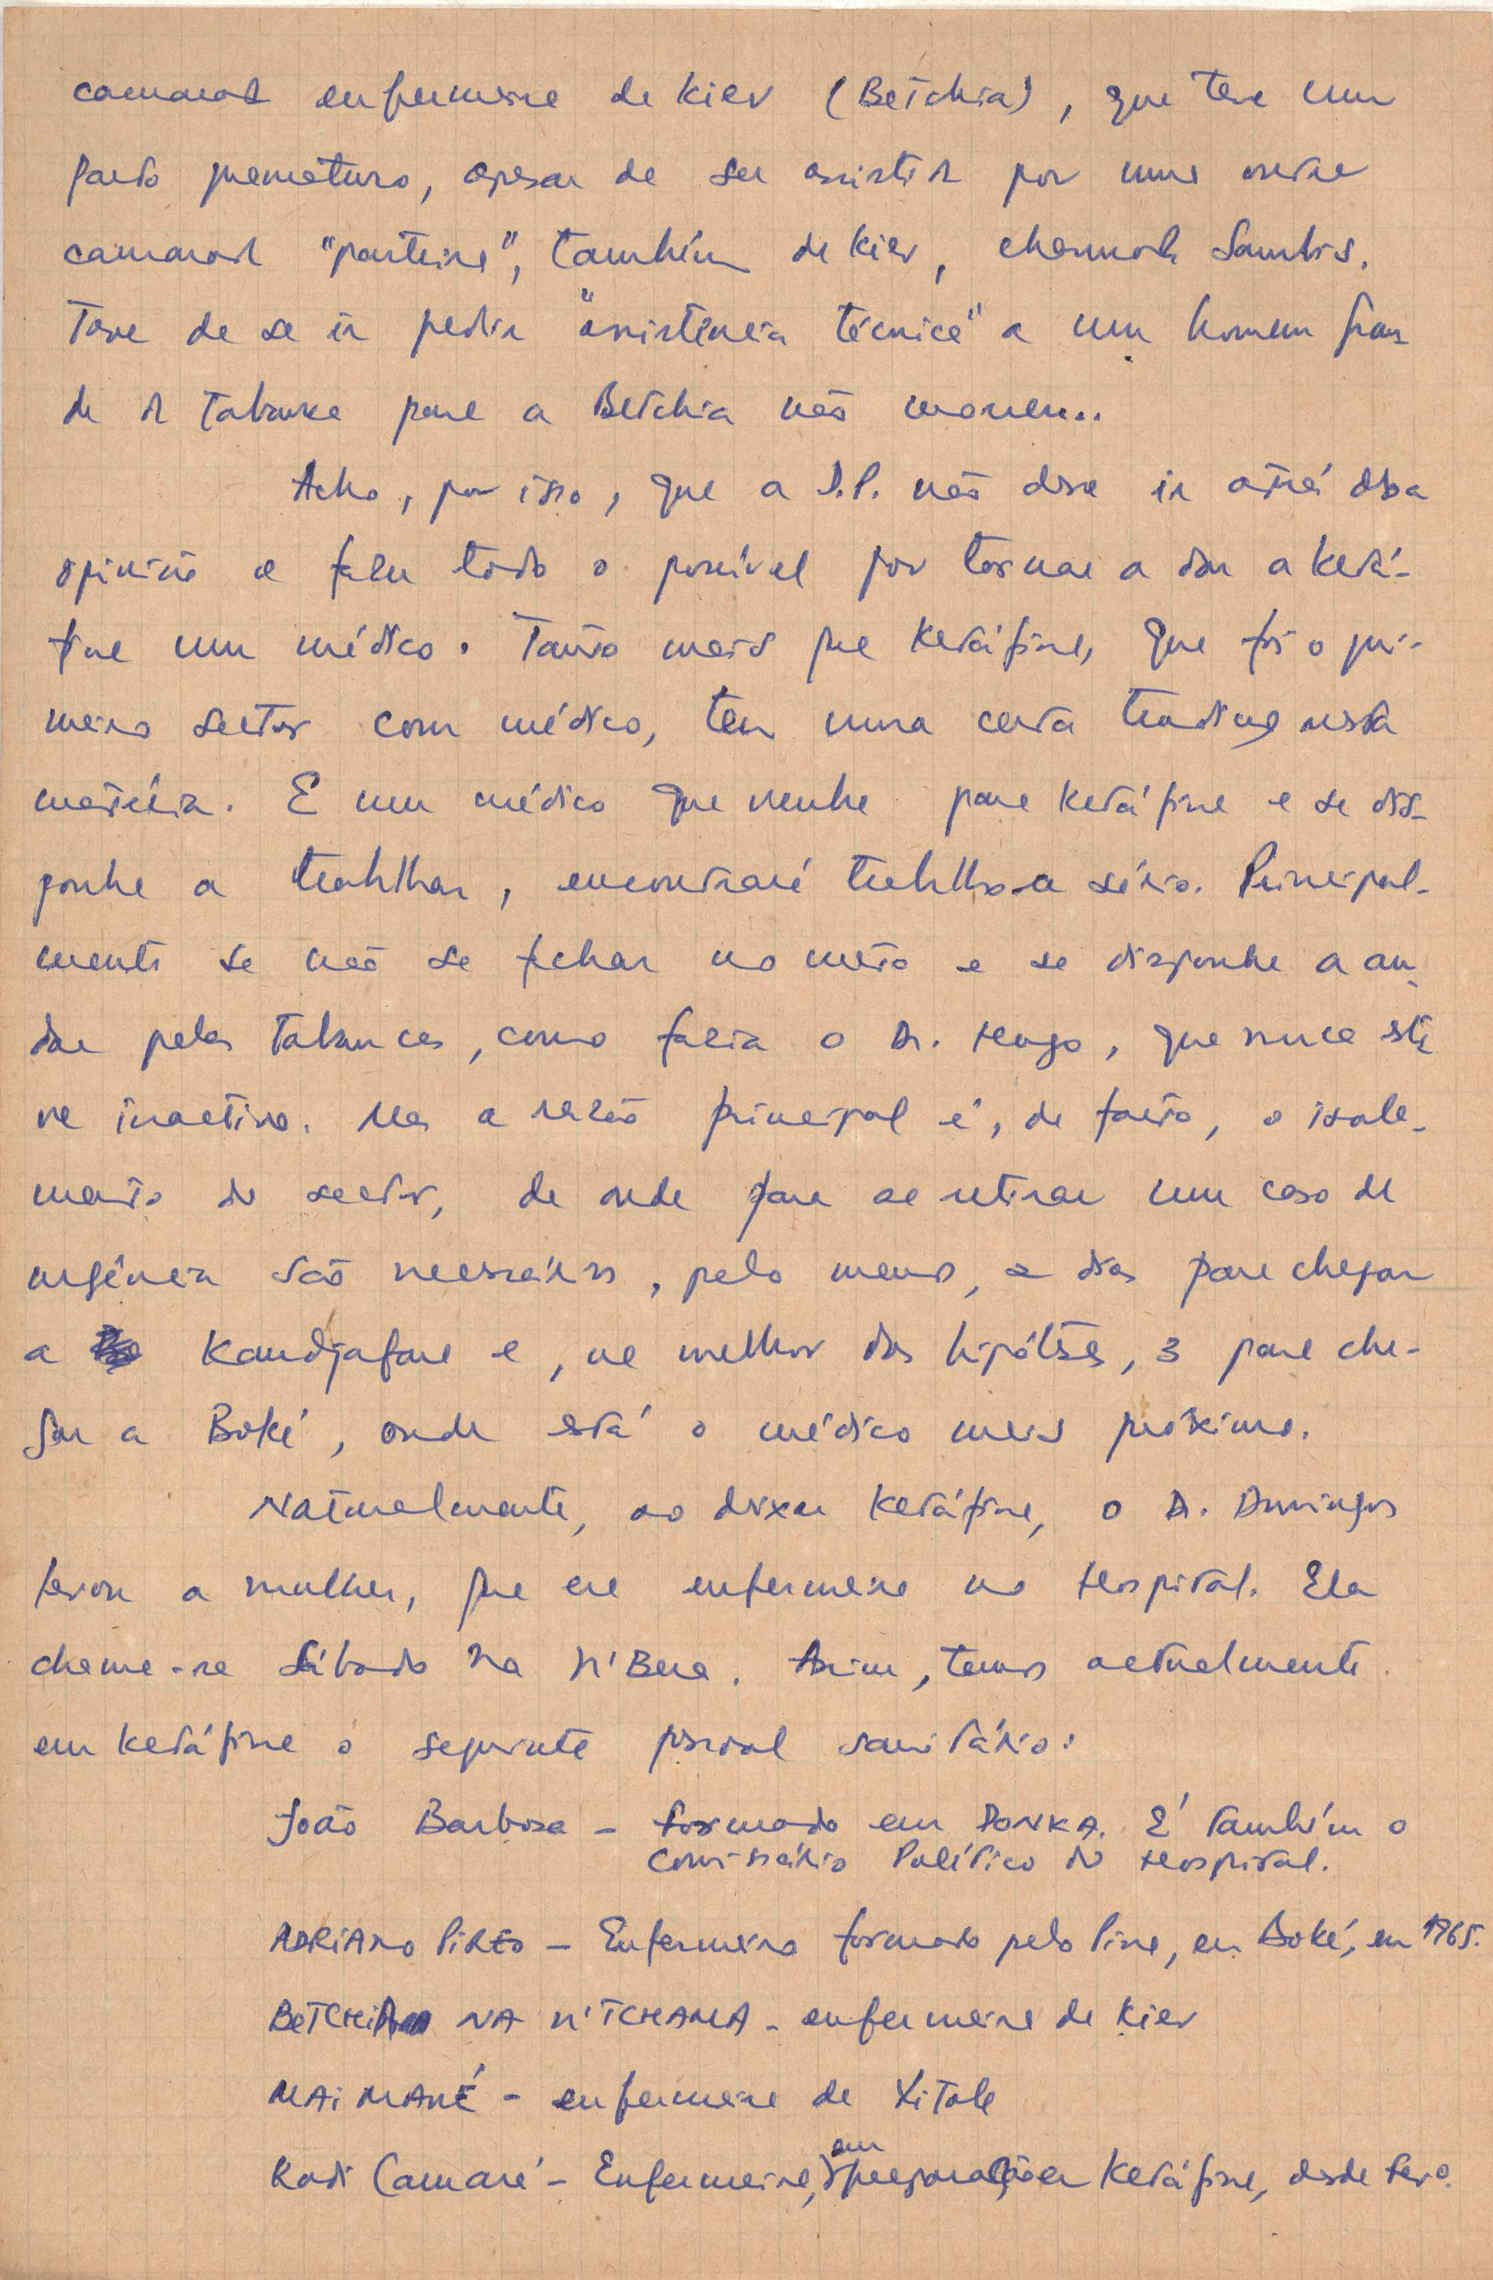 camarada enfermeira de Kiev (Betchia), que teve um
parto prematuro, apesar de ser assistida por uma outra
camarada "parteira", também de Kiev, chamada Sambis.
Teve de se ir pedir "assistência técnica" a um homem gran-
de da tabanca para a Betchia não morrer..
Acho, por isso, que a D.P. não deve ir atrás dessa
opinião e fazer todo o possível por tornar a dar a Ketá-
fine um médico. Tanto mais que Ketáfine, que foi o pri-
meiro sector com médico, tem uma certa tradição nesta
matéria. E um médico que venha para Ketáfine e se dis-
ponha a trabalhar, encontrará trabalho a sério. Principal-
mente se não se fechar no mato e se disponha a an-
dar pelas tabancas, como fazia o Dr. Hugo, que nunca este-
ve inactivo. Mas a razão principal é, de facto, o isola-
mento do sector, de onde para se retirar um caso de
urgência são necessários, pelo menos, 2 dias para chegar
a Kandjafara e, na melhor das hipóteses, 3 para che-
gar a Boké, onde está o médico mais próximo.
Naturalmente, ao deixar Ketáfine, o Dr. Domingos
levou a mulher, que era enfermeira no Hospital. Ela
chama-se Sábado Na N'Bera. Assim, temos actualmente
em Ketáfine o seguinte pessoal sanitário:
João Barbosa - formado em DONKA. É também o
Comissário Político do Hospital.
ADRIANO PIRES - Enfermeiro formado pelo Pina, em Boké, em 1965.
BETCHIA NA N'TCHAMA - enfermeira de Kiev
MAI MANÉ - enfermeira de Xitole
Kadi Camará - Enfermeira, em preparação em Ketáfine, desde Fev.